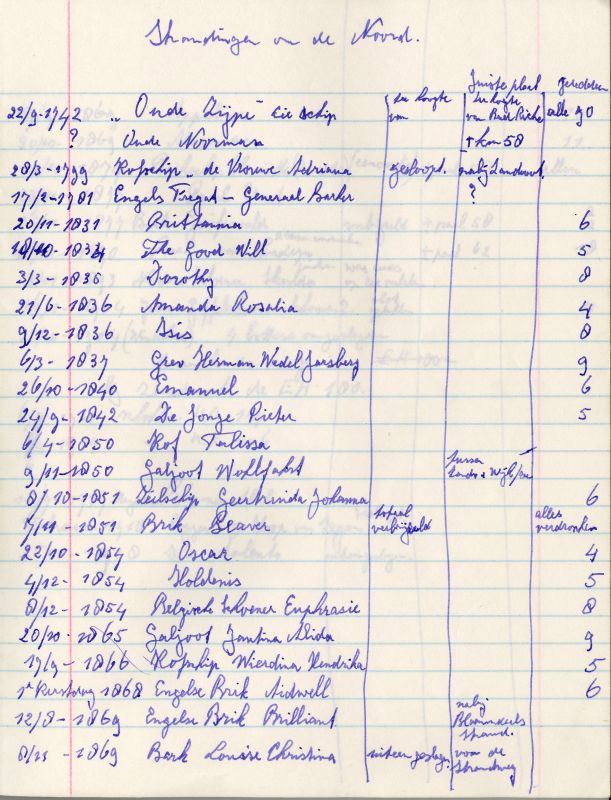 Strandingen op de Noord.
Juiste plaats geredden
22/9-1742 „Oude Zijpe" Eil schip ter hoogte van ter hoogte van alle 90
? Oude Noorman + km 58
28/3-1799 Kofschip „de Vrouwe Adriana gesloopt. nabij Zandvoort.
17/2-1781 Engels Fregat - Generaal Barker ?
20/11-1831 Brittannia 6
-1834 The Good Will 5
3/3-1836 Dorothy 8
21/6-1836 Amanda Rosalia 4
9/12-1836 Isis 8
6/3-1837 Grev Herman Wedel Jarlsberg 9
26/10-1840 Emanuel 6
24/9-1842 De Jonge Pieter 5
6/4-1850 Kof Talissa
9/11-1850 Galjoot Wohlfahrt tussen Zandv. + Wijk/zee
8/10-1851 Zeilschip Geertruida Johanna 6
7/11-1851 Brik Beaver totaal verbrijzeld alles verdronken
22/10-1854 Oscar 4
4/12-1854 Holdenis 5
8/12-1854 Belgische Schoener Euphrasie 8
20/10-1865 Galjoot Jantina Alida 9
17/9-1866 Kofschip Wierdina Hendrika 5
1e Kerstdag 1868 Engelse Brik Aidwell 6
12/8-1869 Engelse Brik Brilliant nabij strand.
8/11-1869 Bark Louise Christina uiteen geslagen voor de Strandweg